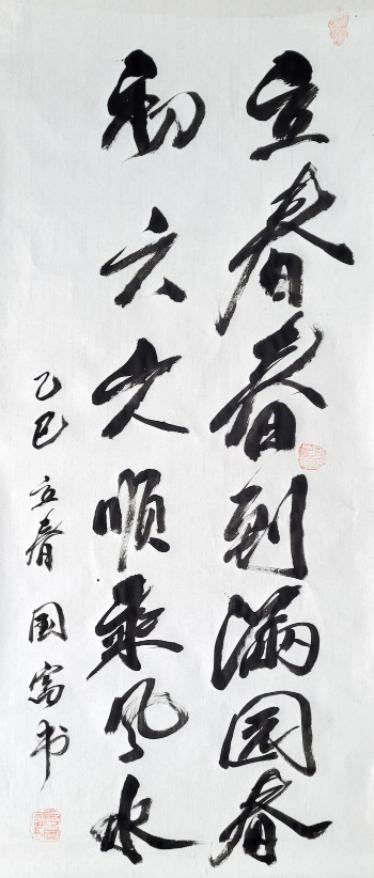 立春春到满园春
初六六顺乘风水
乙巳 立春 国富书